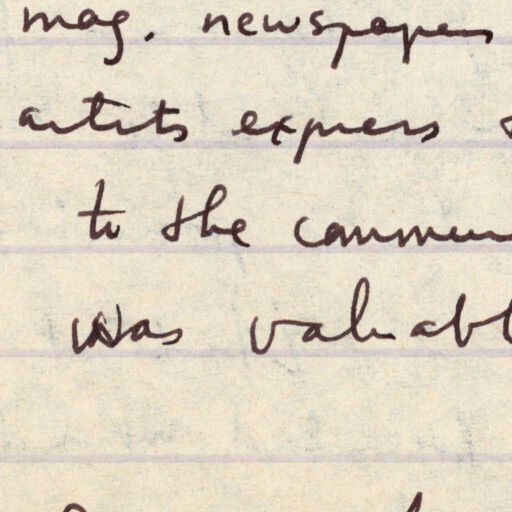 mag. newspapers
artists express
to the commun
was valuabl